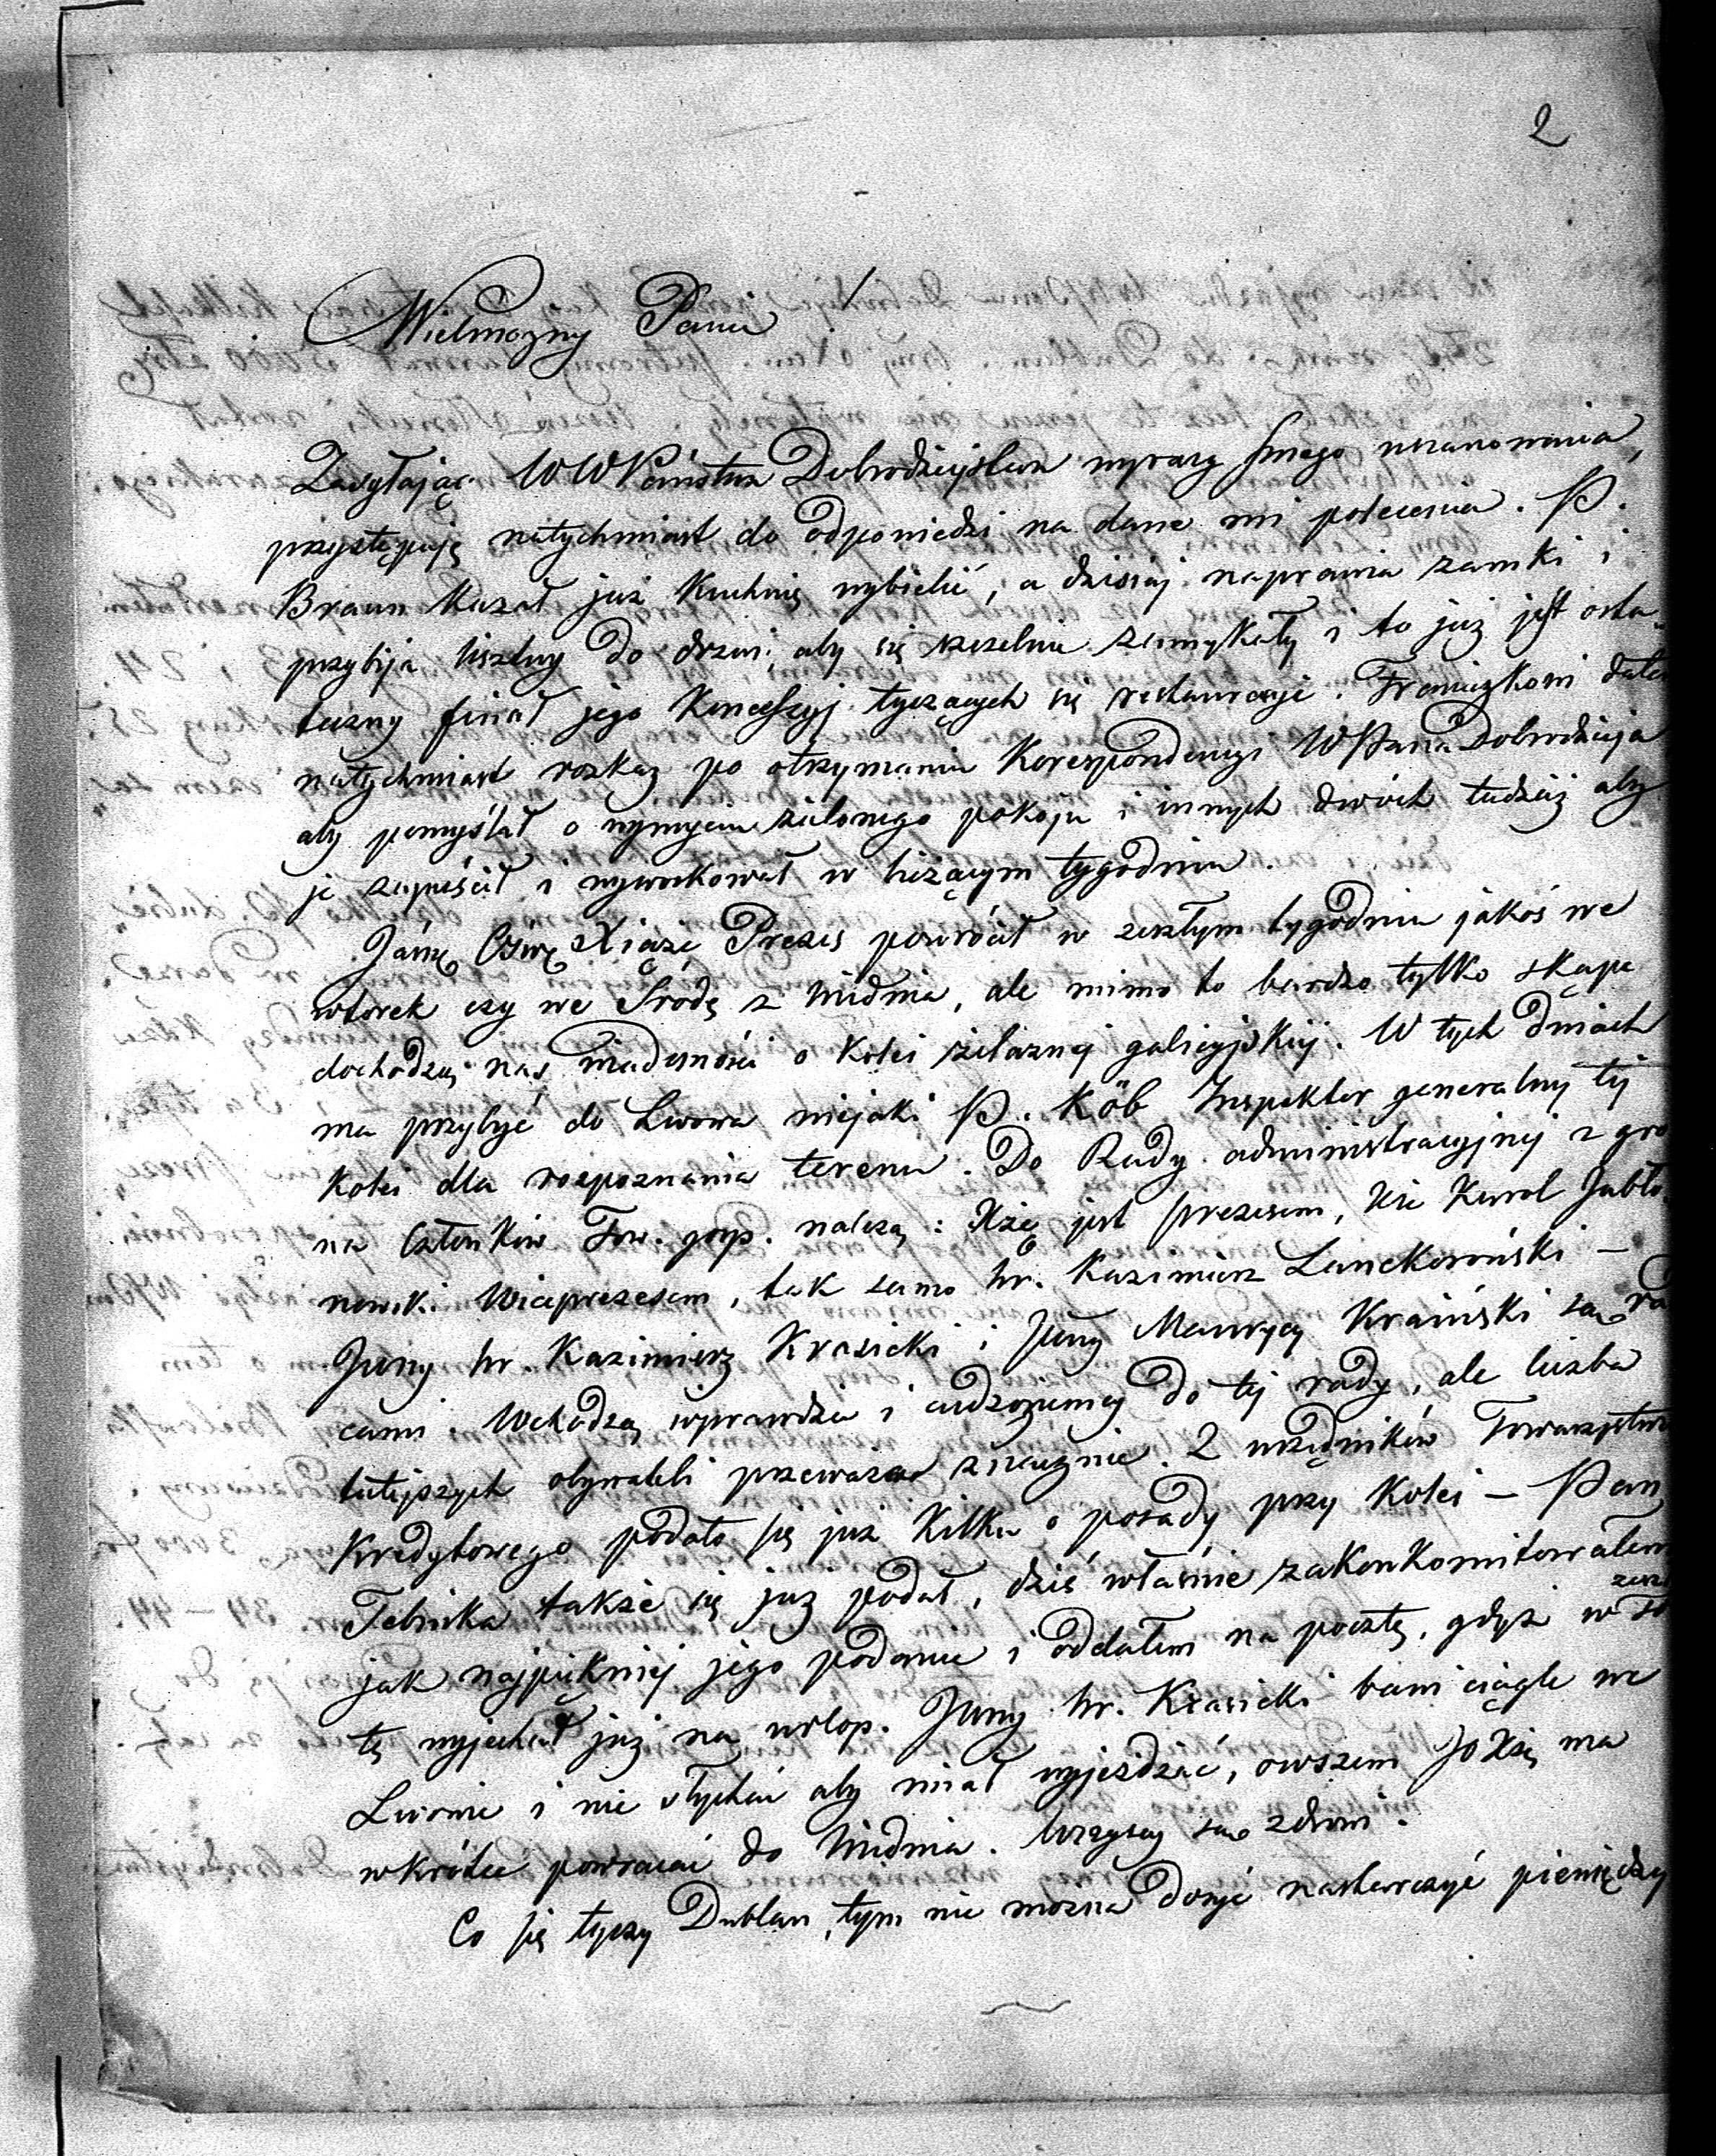 2
Wielmożny Panie!
Zasyłając WWPaństwu Dobrodziejstwu wyrazy mego uszanowania,
przystępuję natychmiast do odpowiedzi na dane mi polecenia. P.
Braun kazał już kuchnię wybielić, a dzisiaj naprawia zamki i
przybija listwy do drzwi, aby się szczelnie zamykały i to już jest osta-
teczny finał jego koncessyj tyczących się restauracji. Franciszkowi dałem
natychmiast rozkaz po otrzymaniu korespondencyi WPana Dobrodzieja
aby pomyślał o wymyciu zielonego pokoju i innych dwóch tudzież aby
je zapuścił i wywoskował w bieżącym tygodniu.
Jaśnie Oświę. Xiążę Prezes powrócił w zeszłym tygodniu jakoś we
wtorek czy we środę z Widnia, ale mimo to bardzo tylko skąpe
dochodzą nas wiadomości o kolei żelaznej galicyjskiej. W tych dniach
ma przybyć do Lwowa niejaki P. Köb Inspektor generalny tej
kolei dla rozpoznania terenu. Do Rady administracyjnej z gro
na członków Tow. gosp. należą: Xżę jest prezesem, Xże Karol Jabło
nowski Wiceprezesem, tak samo hr. Kazimierz Lanckoroński –
JWny hr. Kazimierz Krasicki i JWny Maurycy Kraiński są ra
cami. Wchodzą wprawdzie i cudzoziemcy do tej rady, ale liczba
tutejszych obywateli przeważa znacznie. Z urzędników Towarzystwa
Kredytowego podało się już kilku o posady przy kolei – Pan
Telnika także się już podał, dziś właśnie zakonkomitowałem
jak najpiękniej jego podanie i oddałem na pocztę, gdyż w zeszł so
tę wyjechał już na urlop. JWny hr. Krasicki bawi ciągle we
Lwowie i nie słychać aby miał wyjeżdżać, owszem JO Xżę ma
wkrótce powracać do Widnia. Wszyscy są zdrowi.
Co się tyczy Dublan, tym nie można dosyć nastarczyć pieniędzy